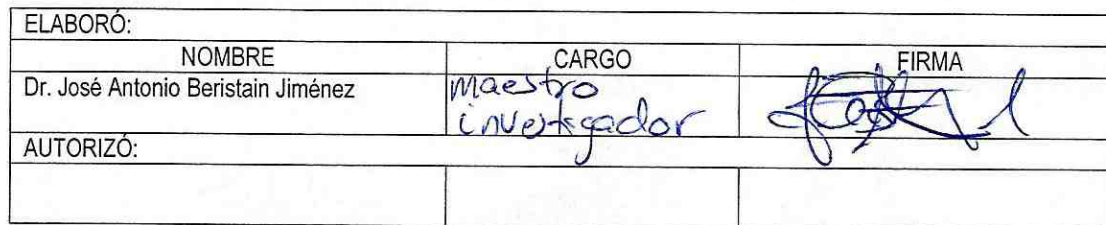 ELABORÓ:
NOMBRE CARGO FIRMA
Dr. José Antonio Beristain Jiménez maestro
investigador
AUTORIZÓ: